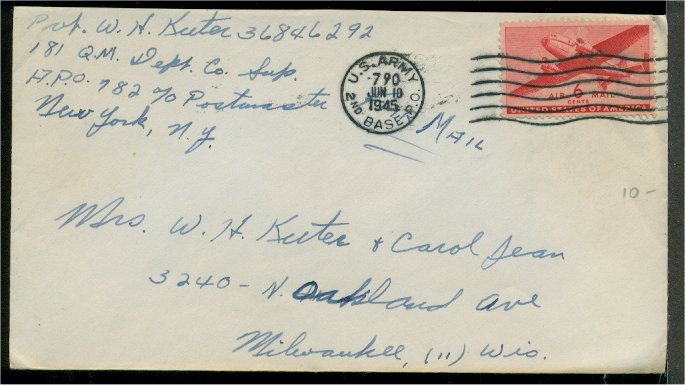 Pvt. W. H. Keeter 36846292
181 Q.M. Dept. Co. Sup.
A.P.O. 782 c/o Postmaster
New York, N.Y.
U.S. ARMY
790
JUN 10
1945
2ND BASE P.O.
AIR 6 MAIL
CENTS
UNITED STATES OF AMERICA
MAIL
10-
Mrs. W. H. Keeter & Carol Jean
3240 - N. Oakland Ave
Milwaukee, (11) Wis.